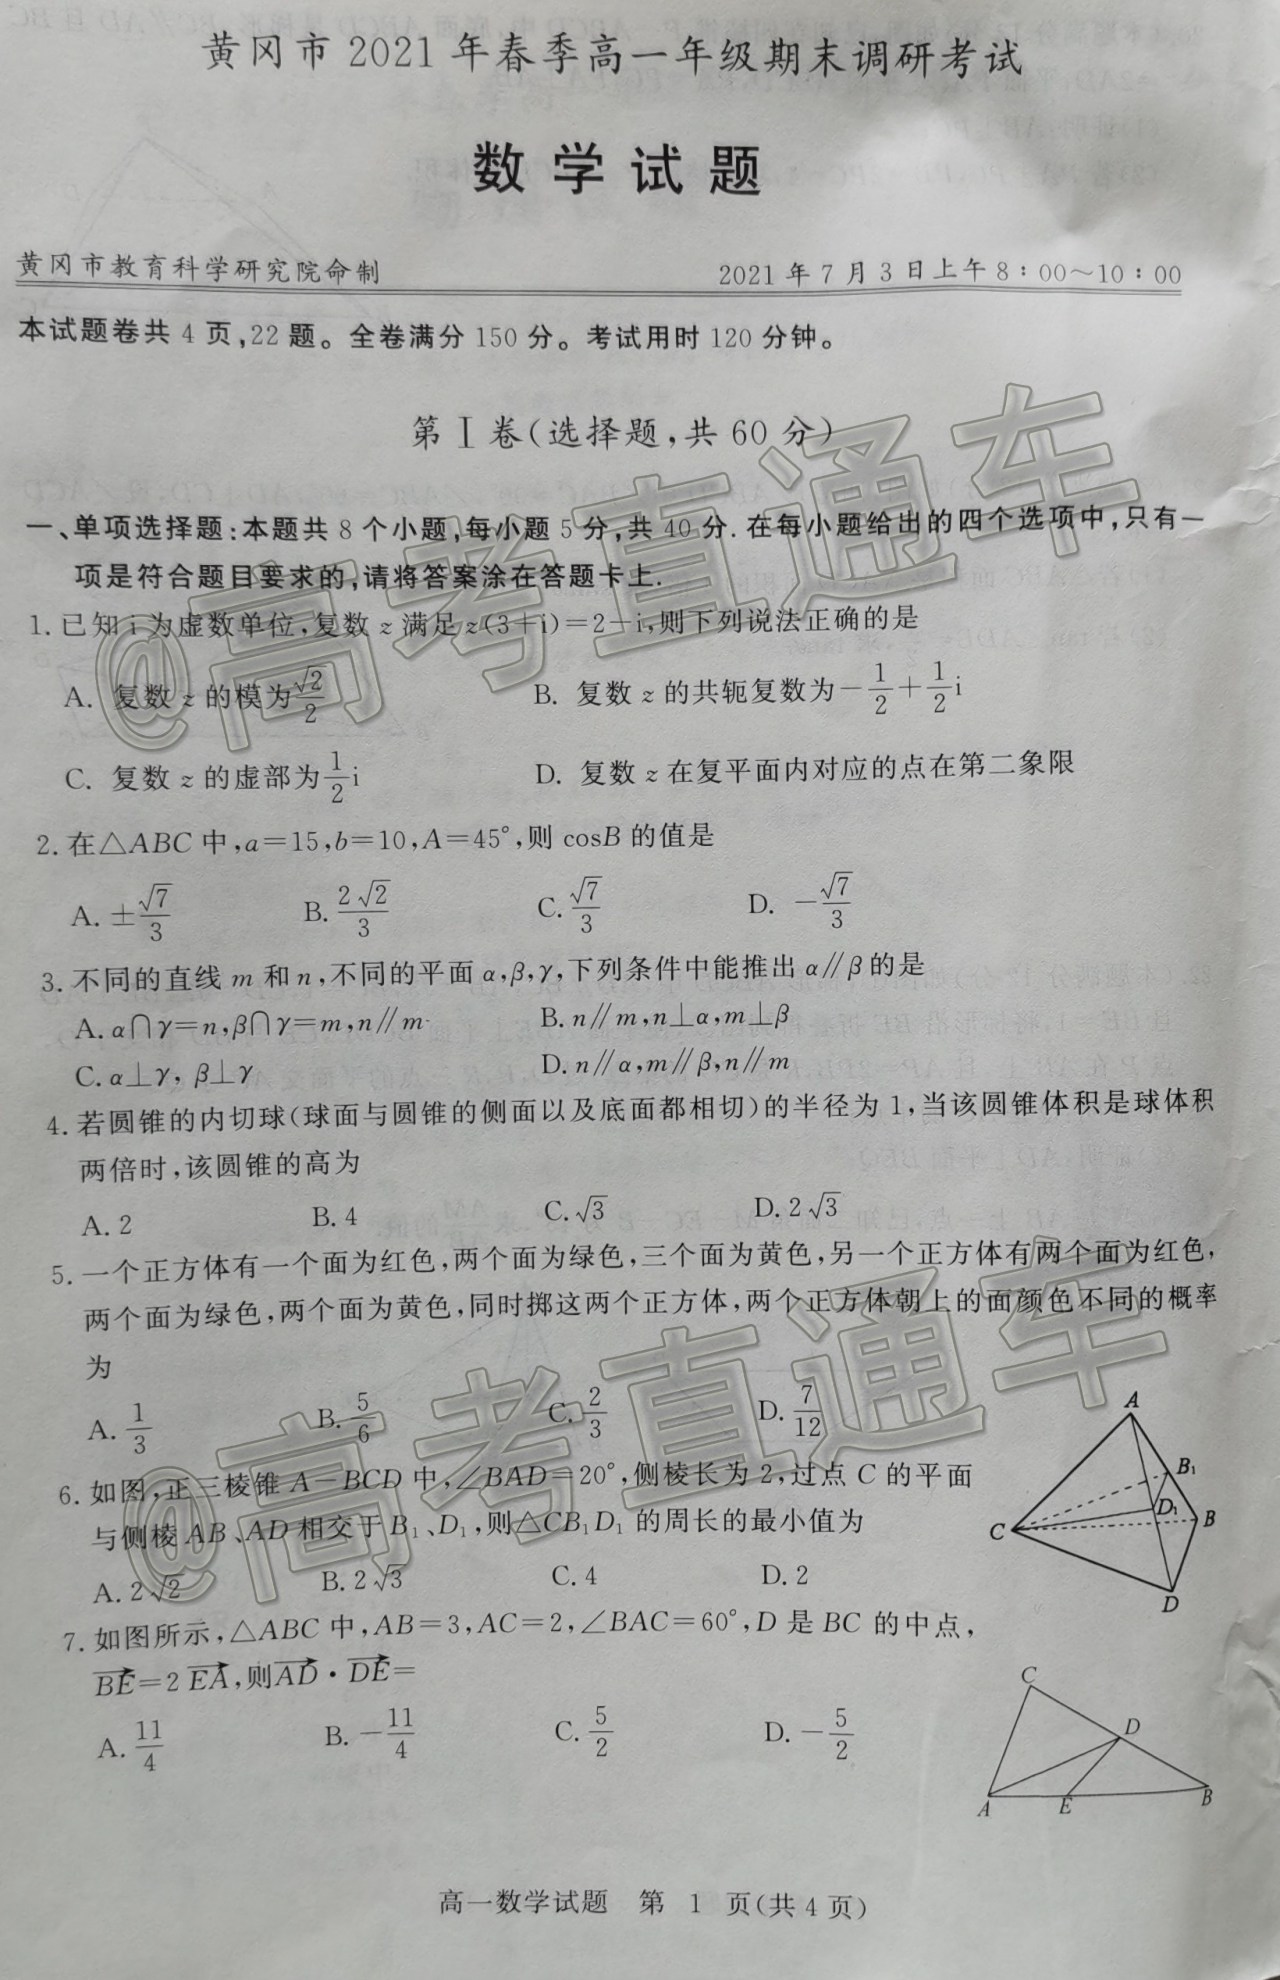 黄冈市2021年春季高一年级期末调研考试
数学试题
黄冈市教育科学研究院命制 2021年7月3日上午8:00~10:00
本试题卷共4页,22题。全卷满分150分。考试用时120分钟。
第Ⅰ卷(选择题,共60分)
一、单项选择题:本题共8个小题,每小题5分,共40分.在每小题给出的四个选项中,只有一
项是符合题目要求的,请将答案涂在答题卡上.
1.已知i为虚数单位,复数z满足z(3+i)=2-i,则下列说法正确的是
A. 复数z的模为√2/2 B. 复数z的共轭复数为-1/2+1/2i
C. 复数z的虚部为1/2i D. 复数z在复平面内对应的点在第二象限
2.在△ABC中,a=15,b=10,A=45°,则cosB的值是
A.±√7/3 B.2√2/3 C.√7/3 D. -√7/3
3.不同的直线m和n,不同的平面α,β,γ,下列条件中能推出α∥β的是
A.α∩γ=n,β∩γ=m,n∥m B.n∥m,n⊥α,m⊥β
C.α⊥γ, β⊥γ D.n∥α,m∥β,n∥m
4.若圆锥的内切球(球面与圆锥的侧面以及底面都相切)的半径为1,当该圆锥体积是球体积
两倍时,该圆锥的高为
A.2 B.4 C.√3 D.2√3
5.一个正方体有一个面为红色,两个面为绿色,三个面为黄色,另一个正方体有两个面为红色,
两个面为绿色,两个面为黄色,同时掷这两个正方体,两个正方体朝上的面颜色不同的概率
为
A.1/3 B.5/6 C.2/3 D.7/12
6.如图,正三棱锥A-BCD中,∠BAD=20°,侧棱长为2,过点C的平面
与侧棱AB、AD相交于B₁、D₁,则△CB₁D₁的周长的最小值为
A.2√2 B.2√3 C.4 D.2
A
B₁
D₁
C
B
D
7.如图所示,△ABC中,AB=3,AC=2,∠BAC=60°,D是BC的中点,
BE=2EA,则AD·DE=
A.11/4 B.-11/4 C.5/2 D.-5/2
C
D
A E B
高一数学试题 第1页(共4页)
@高考直通车
@高考直通车